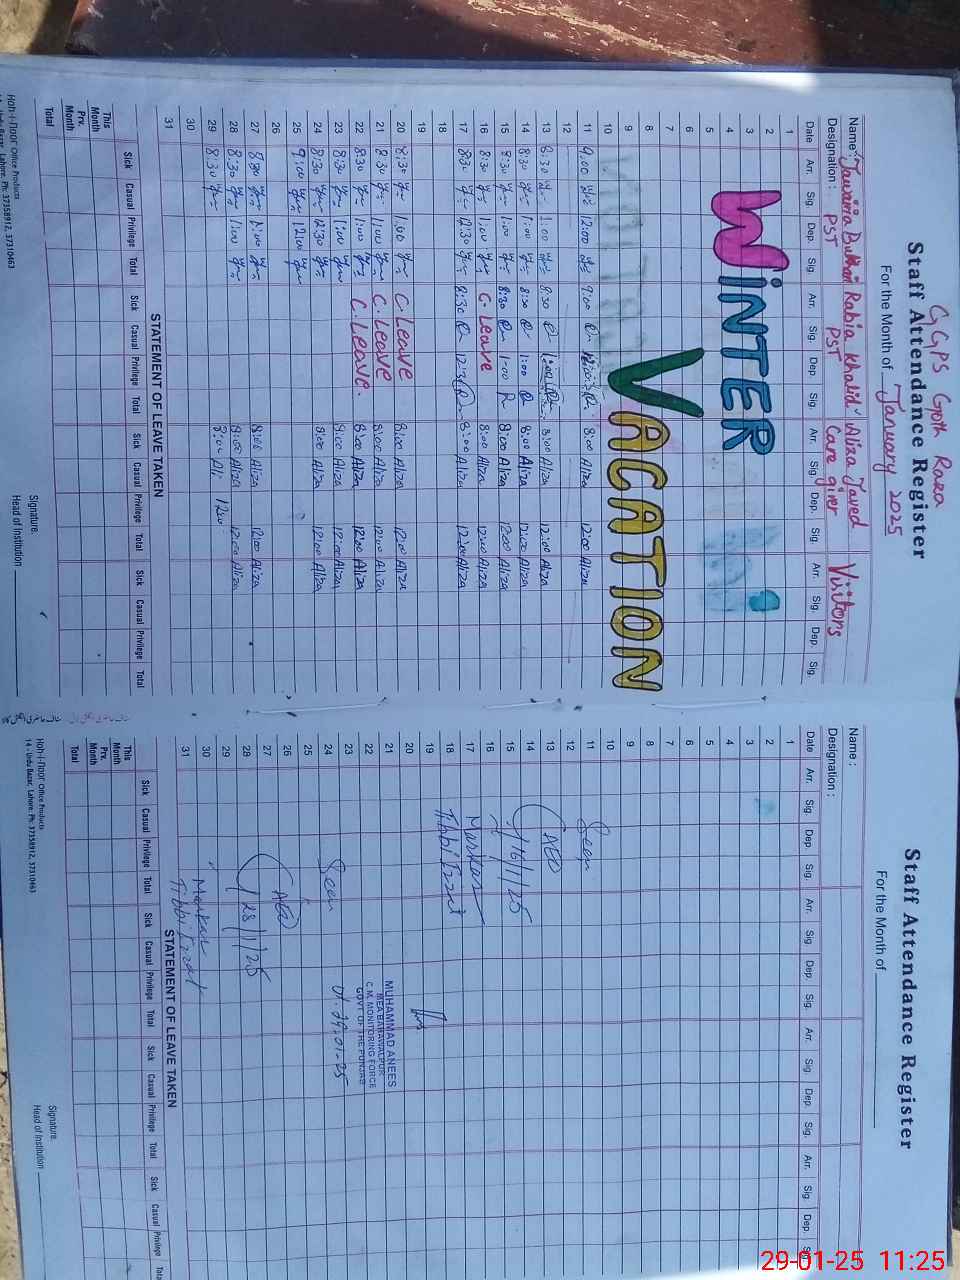 GGPS Goth Raza
Staff Attendance Register
For the Month of January 2025
Name: Jawairia Bukhari Rabia Khalid Aliza Javed Visitors
Designation: PST PST Care giver
Date Arr. Sig. Dep. Sig. Arr. Sig. Dep. Sig. Arr. Sig. Dep. Sig. Arr. Sig. Dep. Sig.
1
2
3
4
5
6
7
8
9
10
WINTER
VACATION
11 9:00 12:00 9:00 8:00 Aliza 12:00 Aliza
12
13 8:30 1:00 8:30 1:00 8:00 Aliza 12:00 Aliza
14 8:30 1:00 8:30 1:00 8:00 Aliza 12:00 Aliza
15 8:30 1:00 8:30 1:00 8:00 Aliza 12:00 Aliza
16 8:30 1:00 C. Leave 8:00 Aliza 12:00 Aliza
17 8:30 12:30 8:30 12:30 8:00 Aliza 12:00 Aliza
18
19
20 8:30 1:00 C. Leave 8:00 Aliza 12:00 Aliza
21 8:30 1:00 C. Leave 8:00 Aliza 12:00 Aliza
22 8:30 1:00 C. Leave. 8:00 Aliza 12:00 Aliza
23 8:30 1:00 8:00 Aliza 12:00 Aliza
24 8:30 12:30 8:00 Aliza 12:00 Aliza
25 9:00 12:00
26
27 8:30 1:00 8:00 Aliza 12:00 Aliza
28 8:30 1:00 8:00 Aliza 12:00 Aliza
29 8:30 8:00 Ali 1200
30
31
STATEMENT OF LEAVE TAKEN
Sick Casual Privilege Total Sick Casual Privilege Total Sick Casual Privilege Total Sick Casual Privilege Total
This Month
Prv. Month
Total
Signature.
Head of Institution
Noh-i-Noor Office Products
Urdu Bazar, Lahore. Ph: 37358912, 37310463
Staff Attendance Register
For the Month of
Name:
Designation:
Date Arr. Sig. Dep. Sig. Arr. Sig. Dep. Sig. Arr. Sig. Dep. Sig. Arr. Sig. Dep. Sig.
1
2
3
4
5
6
7
8
9
10
11 Seen
12
13 AEO
14
15 16/1/25
16
17 Markaz
18 Tibbi Izzat
19
20
21
22
23
24 Seen
25
26
27 AEO
28 28/1/25
29
30 Markaz
31 Tibbi Izzat
MUHAMMAD ANEES
MEA BAHAWALPUR
C.M. MONITORING FORCE
GOVT OF THE PUNJAB
Dt. 29-01-25
STATEMENT OF LEAVE TAKEN
Sick Casual Privilege Total Sick Casual Privilege Total Sick Casual Privilege Total Sick Casual Privilege Total
This Month
Prv. Month
Total
Signature.
Head of Institution
Noh-i-Noor Office Products
14 - Urdu Bazar, Lahore. Ph: 37358912, 37310463
29-01-25 11:25